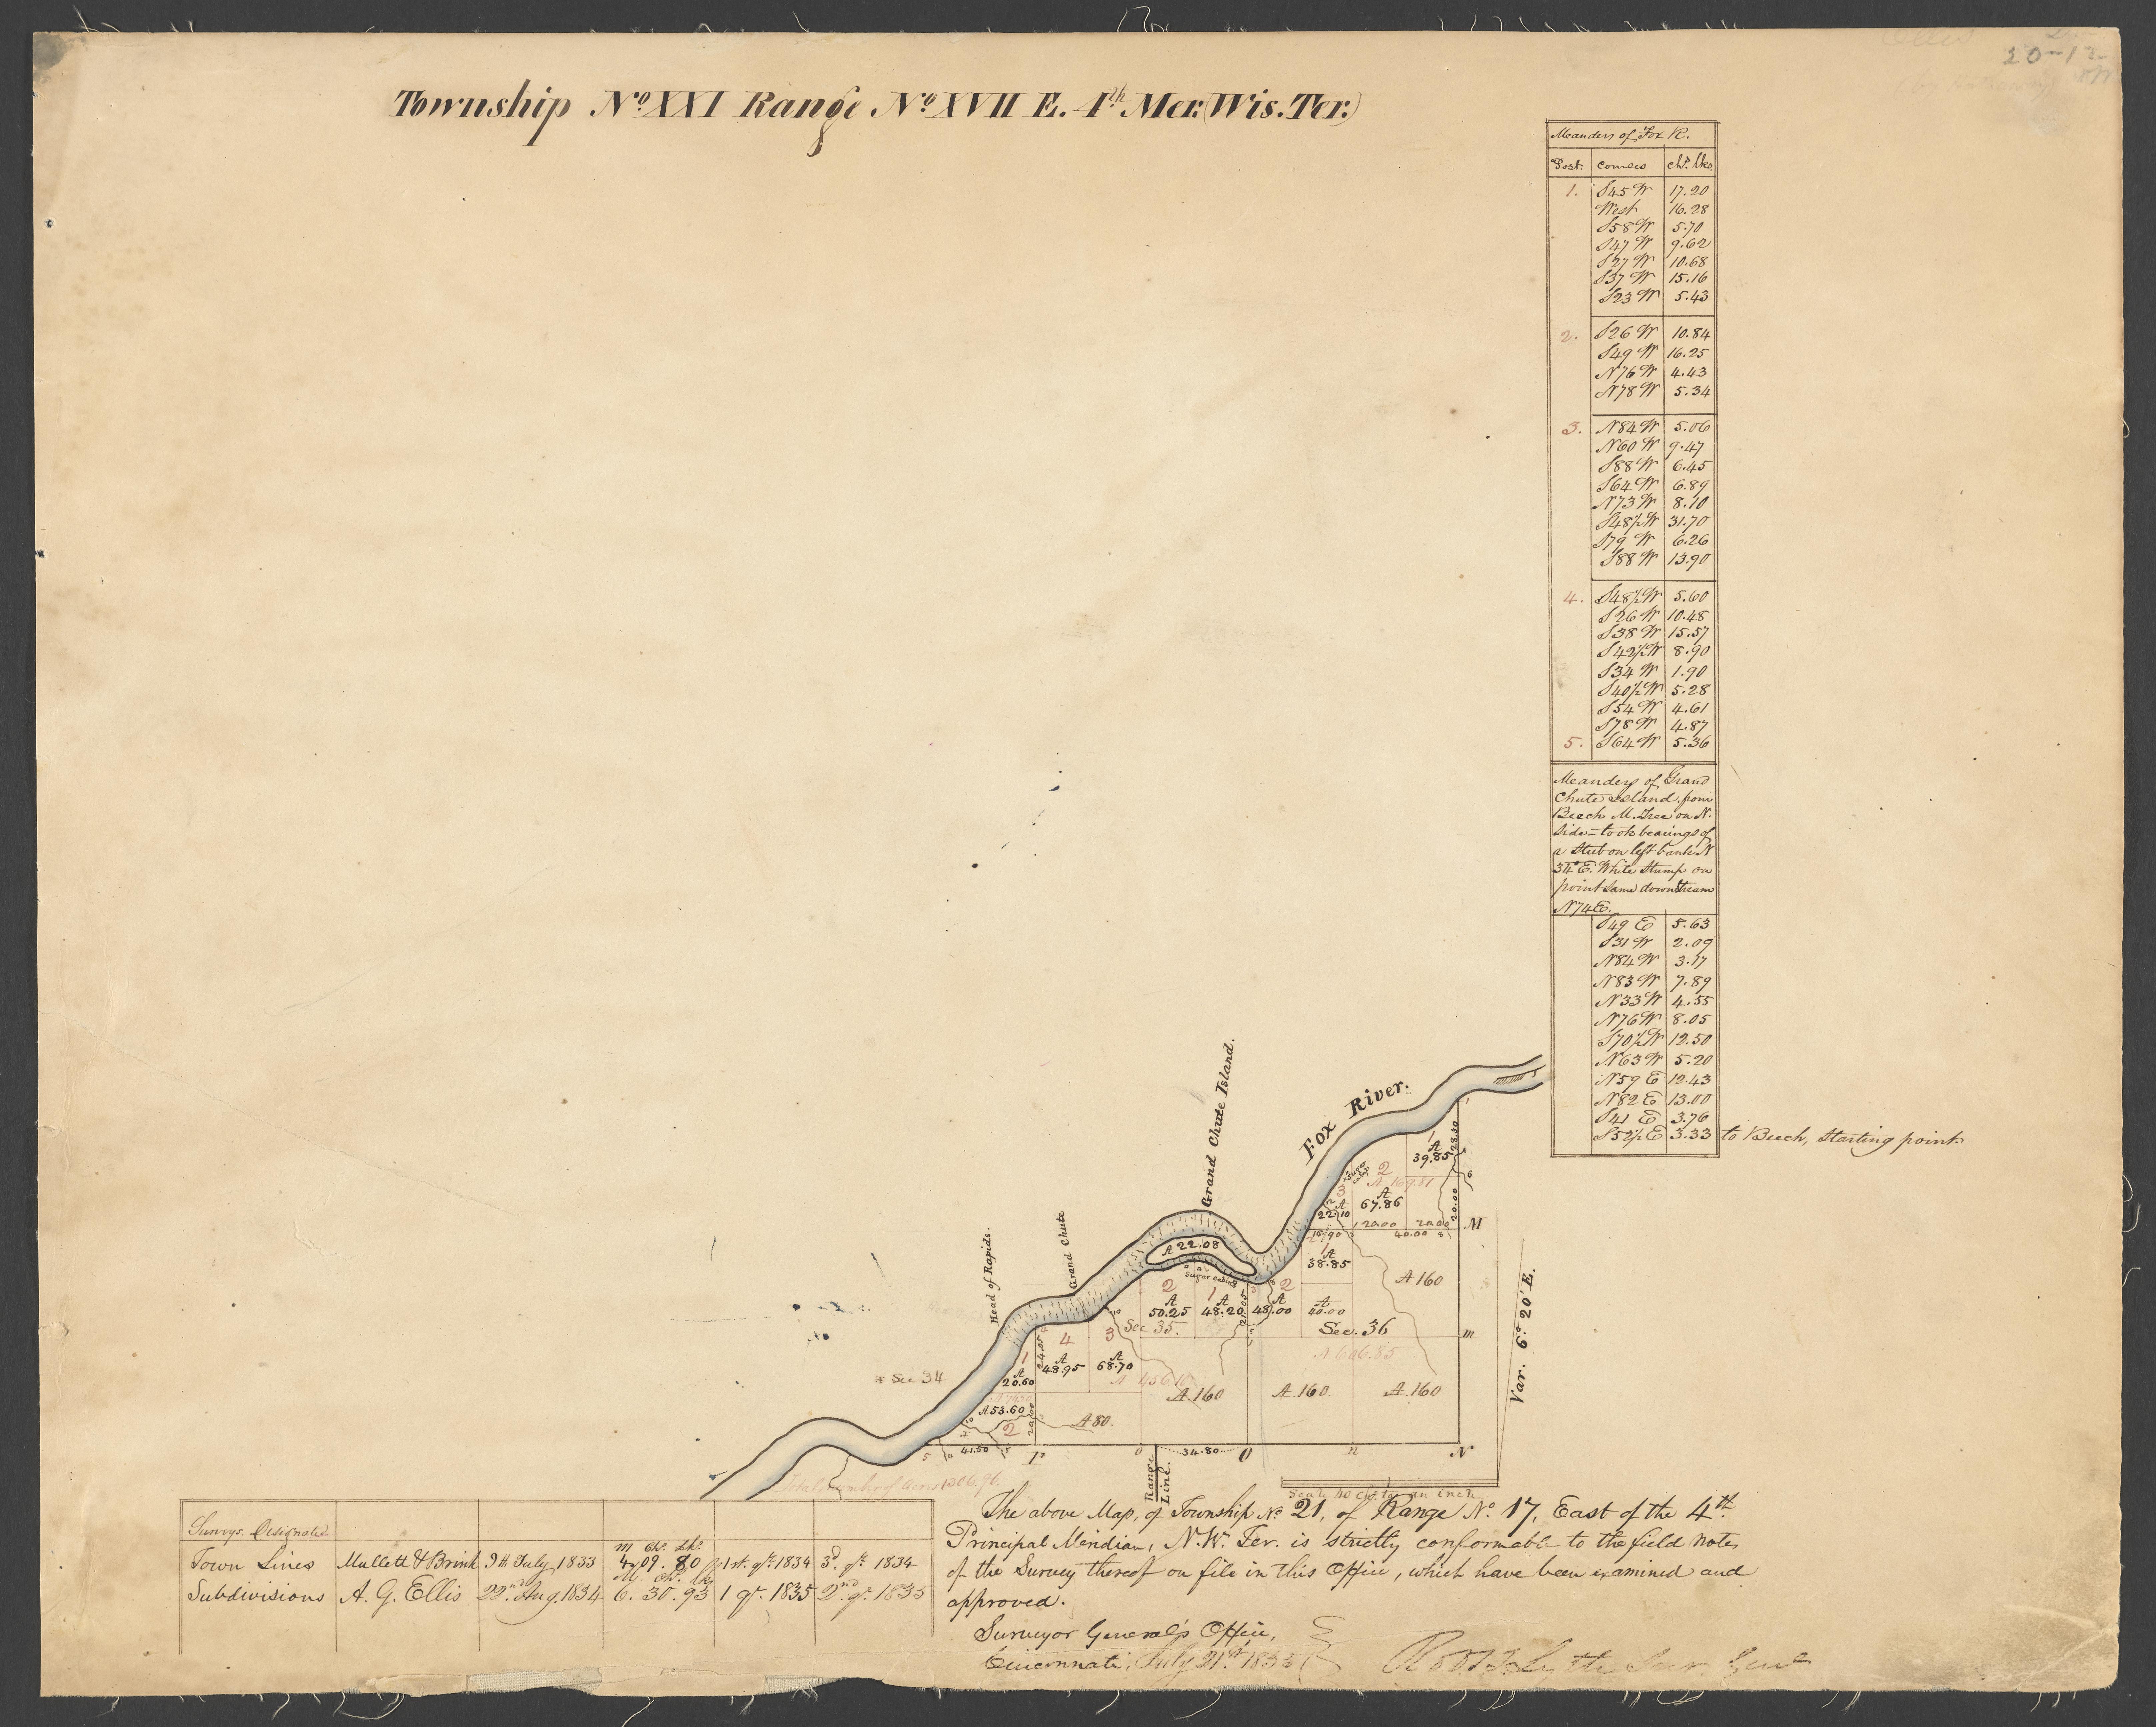 20-12
Township No. XXI Range No. XVII E. 4th Mer. (Wis. Ter.)
Meanders of Fox R.
Post. Courses chs. lks.
1. S45W 17.20
West 16.28
S58W 5.70
S47W 9.62
S27W 10.68
S37W 15.16
S23W 5.43
2. S26W 10.84
S49W 16.25
N76W 4.43
N78W 5.34
3. N84W 5.06
N60W 9.47
S88W 6.45
S64W 6.89
N73W 8.10
S48½W 31.70
S79W 6.26
S88W 13.90
4. S48½W 5.60
S26W 10.48
S38W 15.57
S42½W 8.90
S34W 1.90
S40½W 5.28
S54W 4.61
S78W 4.87
5. S64W 5.36
Meanders of Grand
Chute Island, from
Beech M. Tree on N.
side – took bearings of
a Stub on left bank N
34° E. White Stump on
point same downstream
N74E.
S49E 5.63
S31W 2.09
N84W 3.17
N83W 7.89
N33W 4.55
N76W 8.05
S70½W 12.50
N63W 5.20
N59E 12.43
N82E 13.00
S41E 3.76
S52½E 3.33 to Beech, Starting point
Fox River.
Grand Chute Island.
Grand Chute
Head of Rapids.
1
A
39.85
28.30
2
A 169.81
A
67.86
Sugar Camp
3
A
22.10
20.00
6
20.00
20.00
M
40.00
A 22.08
Sugar Cabins
1
A
38.85
A 160
2
A
50.25
1
A
48.20
21.05
2
A
48.00
A
40.00
Sec. 35.
Sec. 36
m
A 606.85
4
A
48.95
24.05
3
A
68.70
A 456.10
1
A
20.60
Sec 34
A 53.60
2
20.00
A 80.
A 160
A 160.
A 160
5
41.50
P
o
34.80
O
n
N
Range
Line.
Var. 6° 20' E.
Total number of Acres 1306.96
Scale 40 chs. to an inch
Survys. Designated
m ch. lks.
Town Lines Mullett & Brink 9th July 1833 4, 09. 80 1st. qr. 1834 3d. qr. 1834
M. ch. lks
Subdivisions A. G. Ellis 22nd. Aug. 1834 6. 30. 93 1 qr. 1835 2nd. qr. 1835
The above Map, of Township No. 21, of Range No. 17, East of the 4th.
Principal Meridian, N.W. Ter. is strictly conformable to the field notes
of the Survey thereof on file in this Office, which have been examined and
approved.
Surveyor General's Office,
Cincinnati, July 21st. 1835
Robt. T. Lytle Sur. Genl